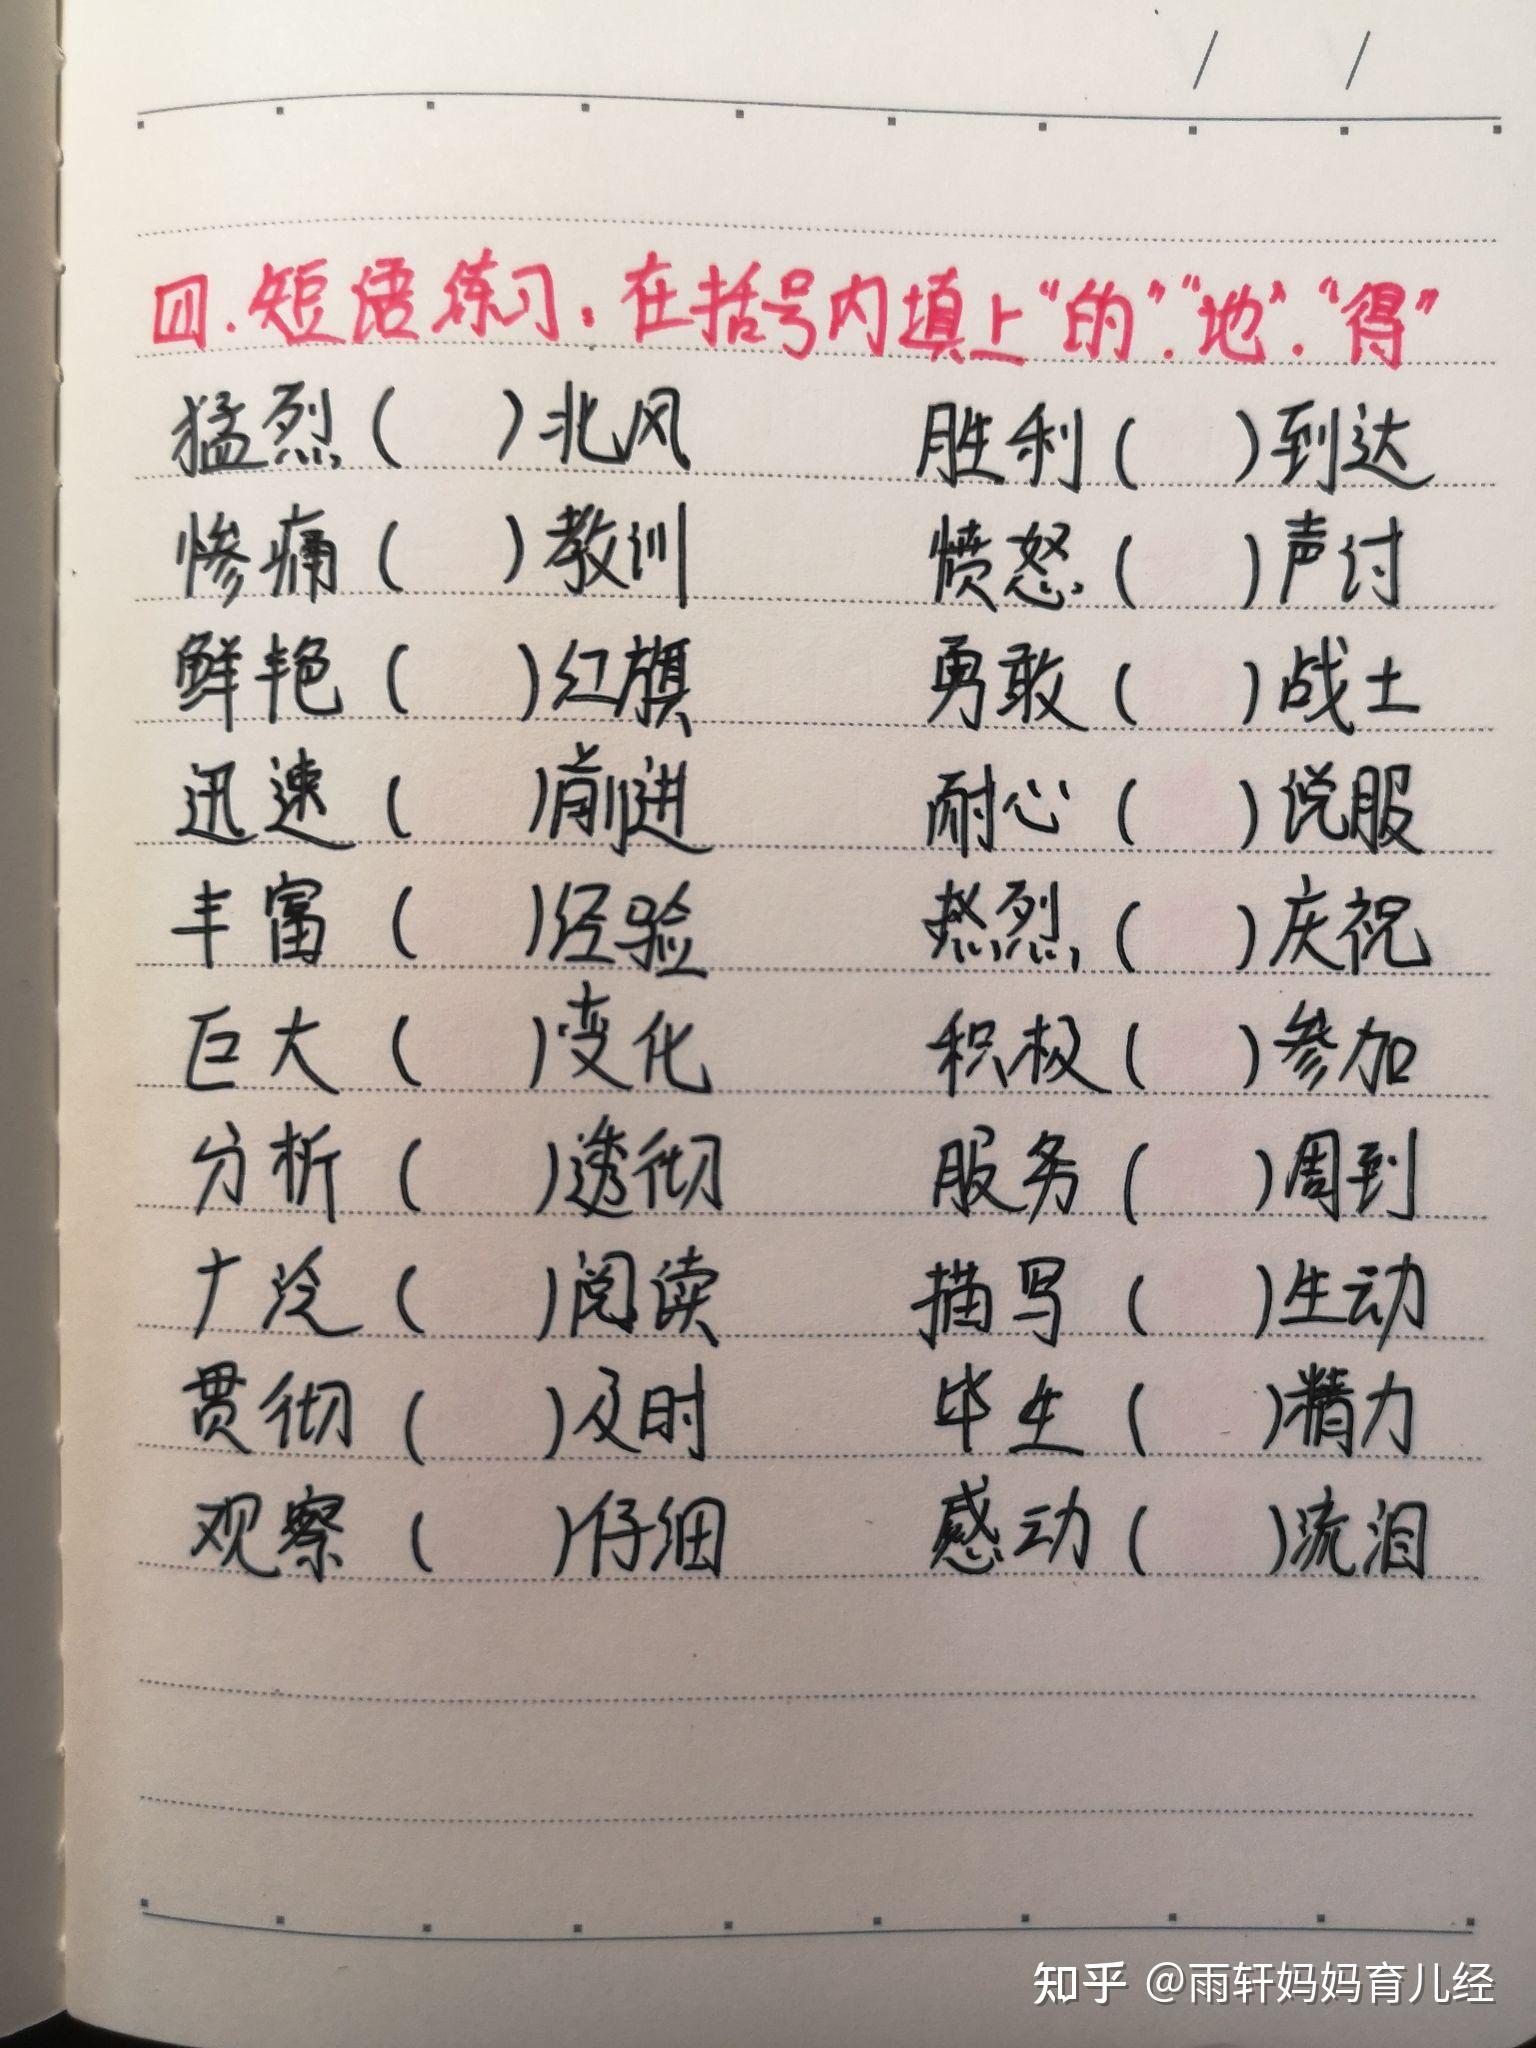 四.短语练习:在括号内填上“的”.“地”.“得”
猛烈(  )北风  胜利(  )到达
惨痛(  )教训  愤怒(  )声讨
鲜艳(  )红旗  勇敢(  )战士
迅速(  )前进  耐心(  )说服
丰富(  )经验  热烈(  )庆祝
巨大(  )变化  积极(  )参加
分析(  )透彻  服务(  )周到
广泛(  )阅读  描写(  )生动
贯彻(  )及时  毕生(  )精力
观察(  )仔细  感动(  )流泪
知乎 @雨轩妈妈育儿经